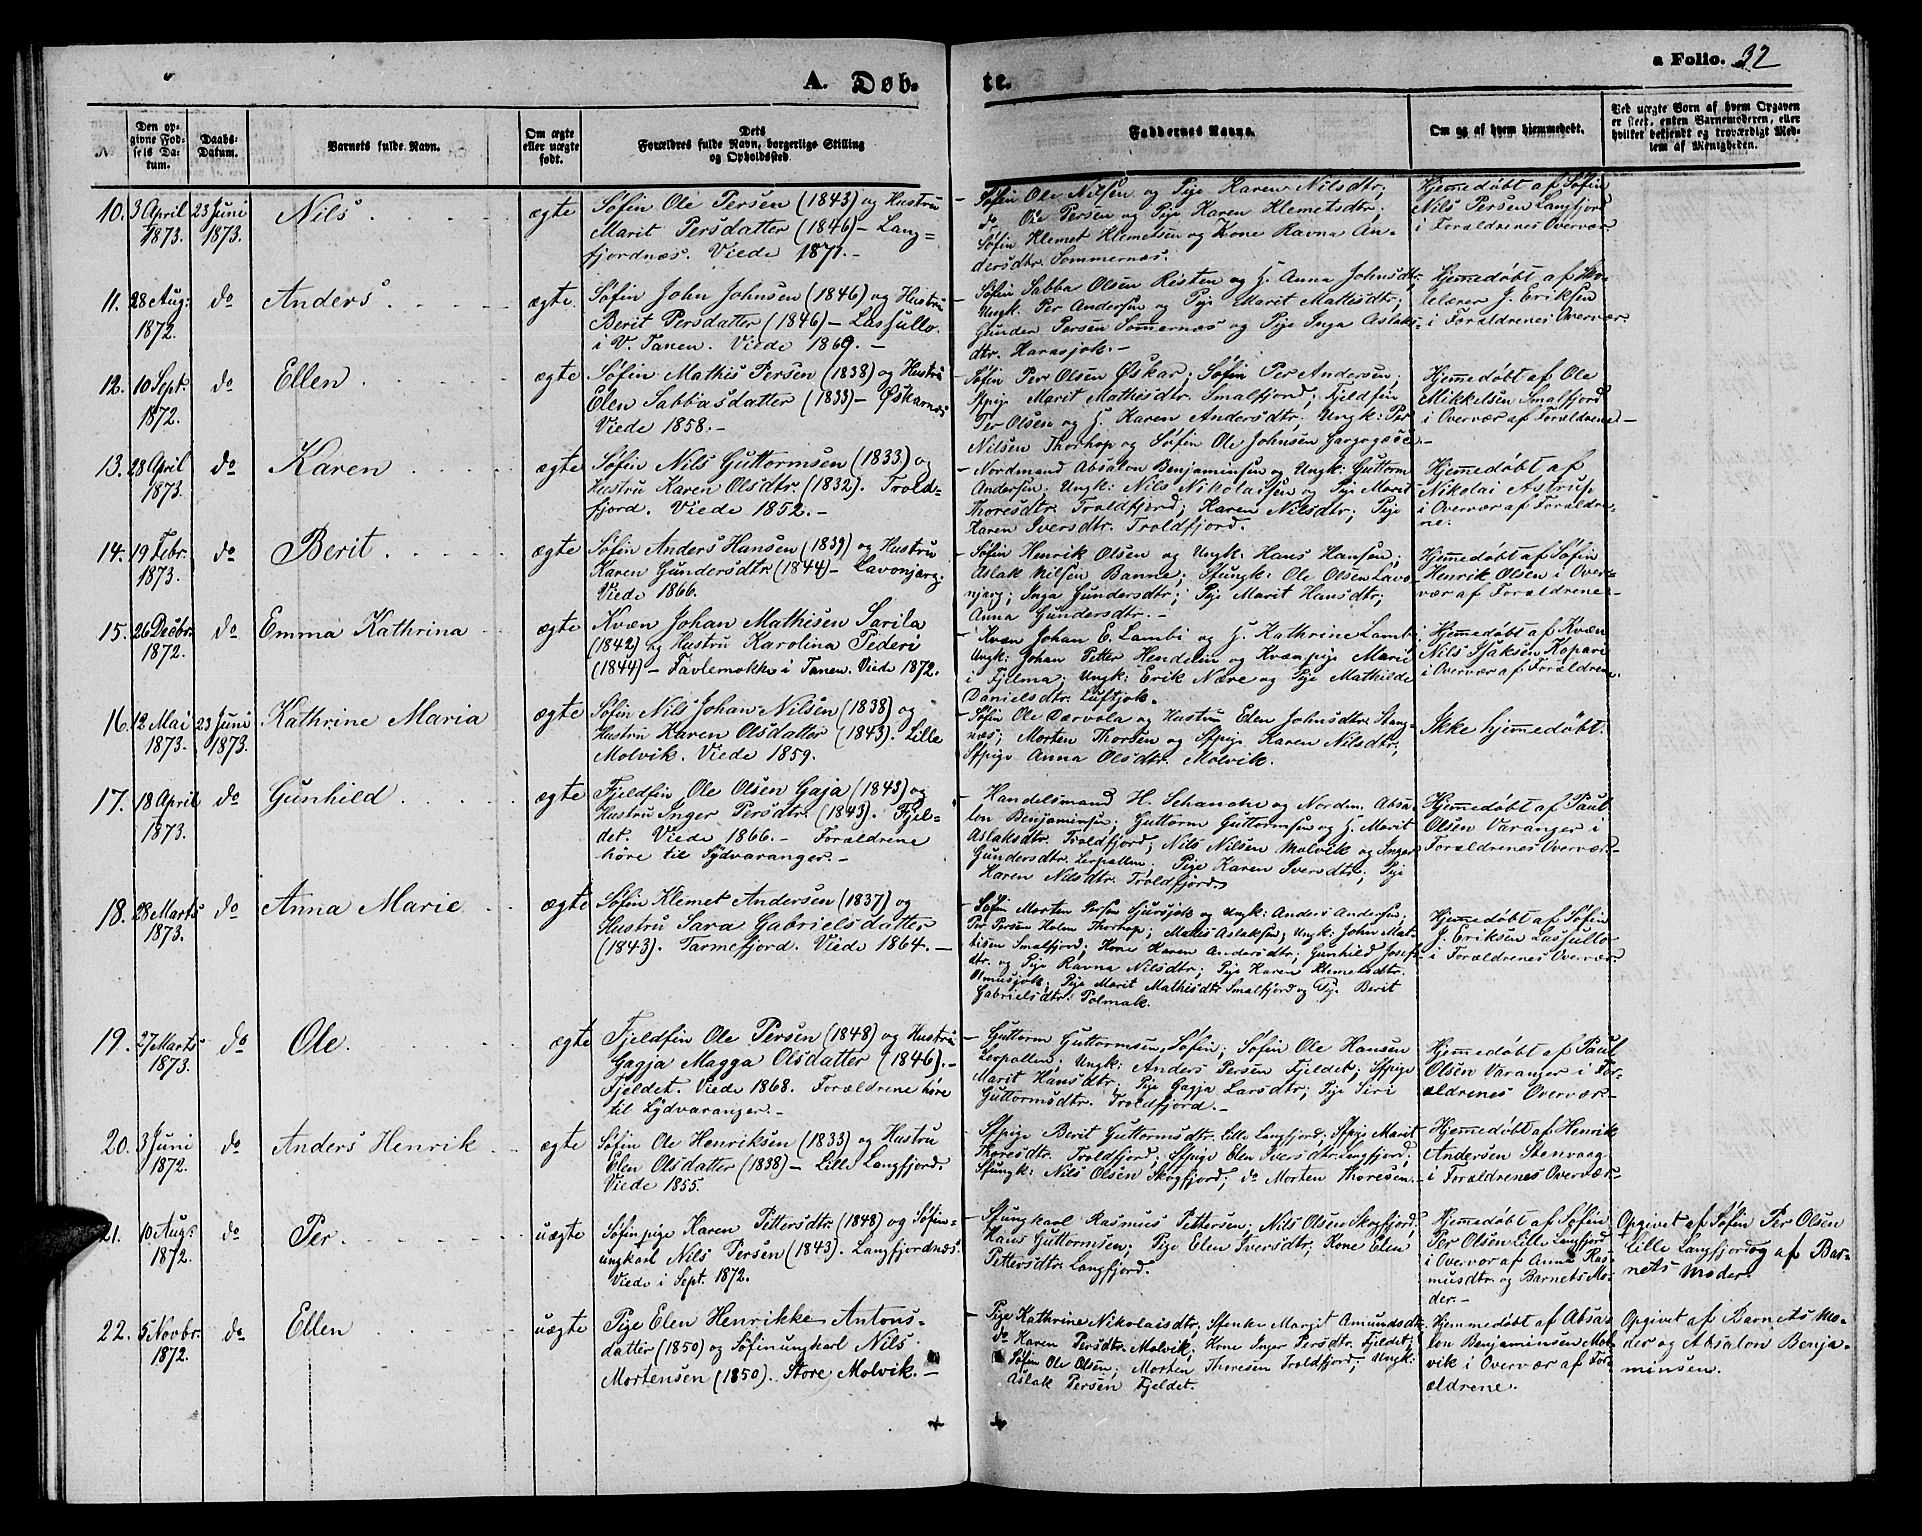 a Folio. 32
A. Døbte.
№
Den opgivne Fødsels Datum.
Daabs-Datum.
Barnets fulde Navn.
Om ægte eller uægte født.
Dets Forældres fulde Navn, borgerlige Stilling og Opholdssted.
Faddernes Navne.
Om og af hvem hjemmedøbt.
Ved uægte Børn af hvem Opgaven er skeet, enten Barnemoderen, eller hvilket bekjendt og troværdigt Medlem af Menigheden.
10. 3 April 1873. 23 Juni 1873. Nils ægte
Søfin Ole Persen (1843) og Hustru
Marit Persdatter (1846) – Lang=
fjordnæs. Viede 1871. –
– Søfin Ole Nilsen og Pige Karen Nilsdtr;
do Ole Persen og Pige Karen Klemetsdtr;
Søfin Klemet Klemetsen og Kone Ravna An-
dersdtr. Sommernæs.
Hjemedøbt af Søfin
Nils Persen Langfjord
i Forældrenes Overvær
11. 28 Aug: 1872. do Anders ægte.
Søfin John Johnsen (1846) og Hustru
Berit Persdatter (1846) – Lassullo.
i V. Tanen. Viede 1869. –
– Søfin Sabba Olsen Risten og H. Anna Johnsdtr;
Ungk. Per Andersen og Pige Marit Mathisdtr;
Gunder Persen Somernæs og Pige Inga Aslaks-
dtr. Karasjok. –
Hjemedøbt af Sko-
lelærer J. Eriksen
i Forældrenes Overvær.
12. 10 Sept. 1872. do Ellen ægte
Søfin Mathis Persen (1838) og Hustru
Elen Sabbasdatter (1833) – Øskarnæs
Viede 1858. –
– Søfin Per Olsen Øskar; Søfin Per Andersen;
Sfpige Marit Mathisdtr. Smalfjord; Fjeldfin
Per Olsen og H. Karen Andersdtr; Ungk: Per
Nilsen Thorhop og Søfin Ole Johnsen Gargogæsce
Hjemedøbt af Ole
Mikkelsen Smalfjord
i Overvær af Forældrene –
13. 28 April 1873. do Karen ægte
Søfin Nils Guttormsen (1833) og
Hustru Karen Olsdtr. (1832). Trold=
fjord. Viede 1852. –
– Nordmand Absalon Benjaminsen og Ungk: Guttorm
Andersen; Ungk: Nils Nikolaisen og Pige Marit
Thoresdtr. Troldfjord; Karen Nilsdtr; Pige
Karen Iversdtr. Troldfjord.
Hjemedøbt af
Nikolai Astrup
i Overvær af Forældre-
ne.
14. 19 Febr. 1873. do Berit ægte
Søfin Anders Hansen (1839) og Hustru
Karen Gundersdtr. (1844) – Lavonjarg.
Viede 1866.
– Søfin Henrik Olsen og Ungk: Hans Hansen;
Aslak Nilsen Banne; Sfungk: Ole Olsen Lavo-
njarg; Inga Gundersdtr; Pige Marit Hansdtr;
Anna Gundersdtr. –
Hjemedøbt af Søfin
Henrik Olsen i Over-
vær af Forældrene –
15. 26 Decbr. 1872. do Emma Kathrina ægte
Kvæn Johan Mathisen Savila
(1842) og Hustru Karolina Pederi
(1844) – Favlemokka i Tanen. Viede 1872.
– Kvæn Johan E. Lambi og H. Kathrine Lambi
Ungk: Johan Petter Hendelin og Kvænpige Marie
i Fjelma; Ungk: Erik Nære og Pige Mathilde
Danielsdtr. Luftjok.
Hjemedøbt af Kvæn
Nils Isaksen Kopare
i Overvær af Forældrene.
16. 12 Mai 1873. 23 Juni 1873. Kathrine Maria ægte
Søfin Nils Johan Nilsen (1838) og
Hustru Karen Olsdatter (1843). Lille
Molvik. Viede 1859.
– Søfin Ole Dærvola og Hustru Elen Johnsdtr. Stang-
næs; Morten Thorsen og Sfpige Karen Nilsdtr;
Sfpige Anna Olsdtr. Molvik.
Ikke hjemedøbt.
17. 18 April 1873. do Gunhild ægte
Fjeldfin Ole Olsen Gaja (1843) og
Hustru Inger Persdtr. (1843). Fjel-
det. Viede 1866. – Forældrene
høre til Sydvaranger. –
– Handelsmand H. Schanche og Nordm. Absa-
lon Benjaminsen; Guttorm Guttormsen og H. Marit
Aslaksdtr. Troldfjord; Nils Nilsen Molvik og Inger
Gundersdtr. Lerpollen; Pige Karen Iversdtr; Pige
Karen Nilsdtr. Troldfjord
Hjemedøbt af Paul
Olsen Varanger i
Forældrenes Overvær. –
18. 28 Marts 1873. do Anna Marie ægte
Søfin Klemet Andersen (1837) og
Hustru Sara Gabrielsdatter
(1843). Tarmefjord. Viede 1864. –
– Søfin Morten Persen Hjursjok og Ungk: Anders Andersen;
Per Persen Holm Thorhop; Mathis Aslaksen; Ungk: John Mat-
tisen Smalfjord; Kone Karen Andersdtr; Gunhild Josefs-
dtr. og Pige Ravna Nilsdtr; Pige Karen Klemetsdtr.
Olmusjok; Pige Marit Mathisdtr. Smalfjord og Pg. Berit
Gabrielsdtr. Polmak.
Hjemedøbt af Søfin
J. Eriksen Lassullo
i Forældrenes Overvær.
19. 27 Marts 1873. do Ole. ægte
Fjeldfin Ole Persen (1848) og Hustru
Gagja Magga Olsdatter (1846). –
Fjeldet. Viede 1868. Forældrene høre
til Sydvaranger. –
– Guttorm Guttormsen, Søfin; Søfin Ole Hansen
Lerpollen; Ungk: Anders Persen Fjeldet; Sfpige
Marit Hansdtr; Pige Gagja Larsdtr; Pige Siri
Guttormsdtr. Troldfjord. –
Hjemedøbt af Paul
Olsen Varanger i For-
ældrenes Overvær –
20. 3 Juni 1872. do Anders Henrik ægte
Søfin Ole Henriksen (1833) og Hustru
Elen Olsdatter (1838) – Lille Langfjord.
Viede 1855.
– Sfpige Berit Guttormsdtr. Lille Langfjord; Sfpige Marit
Thoresdtr. Troldfjord; Sfpige Elen Iversdtr. Langfjord;
Sfungk: Nils Olsen Skogfjord; do Morten Thoresen. –
Hjemedøbt af Henrik
Andersen Stenvaag
i Forældrenes Overvær –
21. 10 Aug. 1872. do Per uægte
Søfinpige Karen Pettersdtr. (1848) og Søfin=
ungkarl Nils Persen (1843). Langfjordnæs.
Viede i Sept. 1872.
– Sfungkarl Rasmus Pettersen; Nils Olsen Skogfjord;
Hans Guttormsen; Pige Elen Iversdtr; Kone Elen
Pettersdtr. Langfjord.
Hjemedøbt af Søfin
Per Olsen Lille Langfjord
i Overvær af Anna Ras-
musdtr. og Barnets Mo-
der. –
Opgivet af Søfin Per Olsen
Lille Langfjord og af Bar-
nets Moder.
22. 5 Novbr. 1872. do Ellen uægte
Pige Elen Henrikke Antons-
datter (1850) og Søfinungkarl Nils
Mortensen (1850). Store Molvik. –
– Pige Kathrine Nikolaisdtr; Spenke Margit Amundsdtr;
do Karen Persdtr. Molvik; Kone Inger Persdtr. Fjeldet;
Søfin Ole Olsen; Morten Thoresen Troldfjord; Ungk:
Aslak Persen Fjeldet.
Hjemmedøbt af Absa-
lon Benjaminsen Mol-
vik i Overvær af For-
ældrene.
Opgivet af Barnets Mo-
der og Absalon Benja-
minsen.